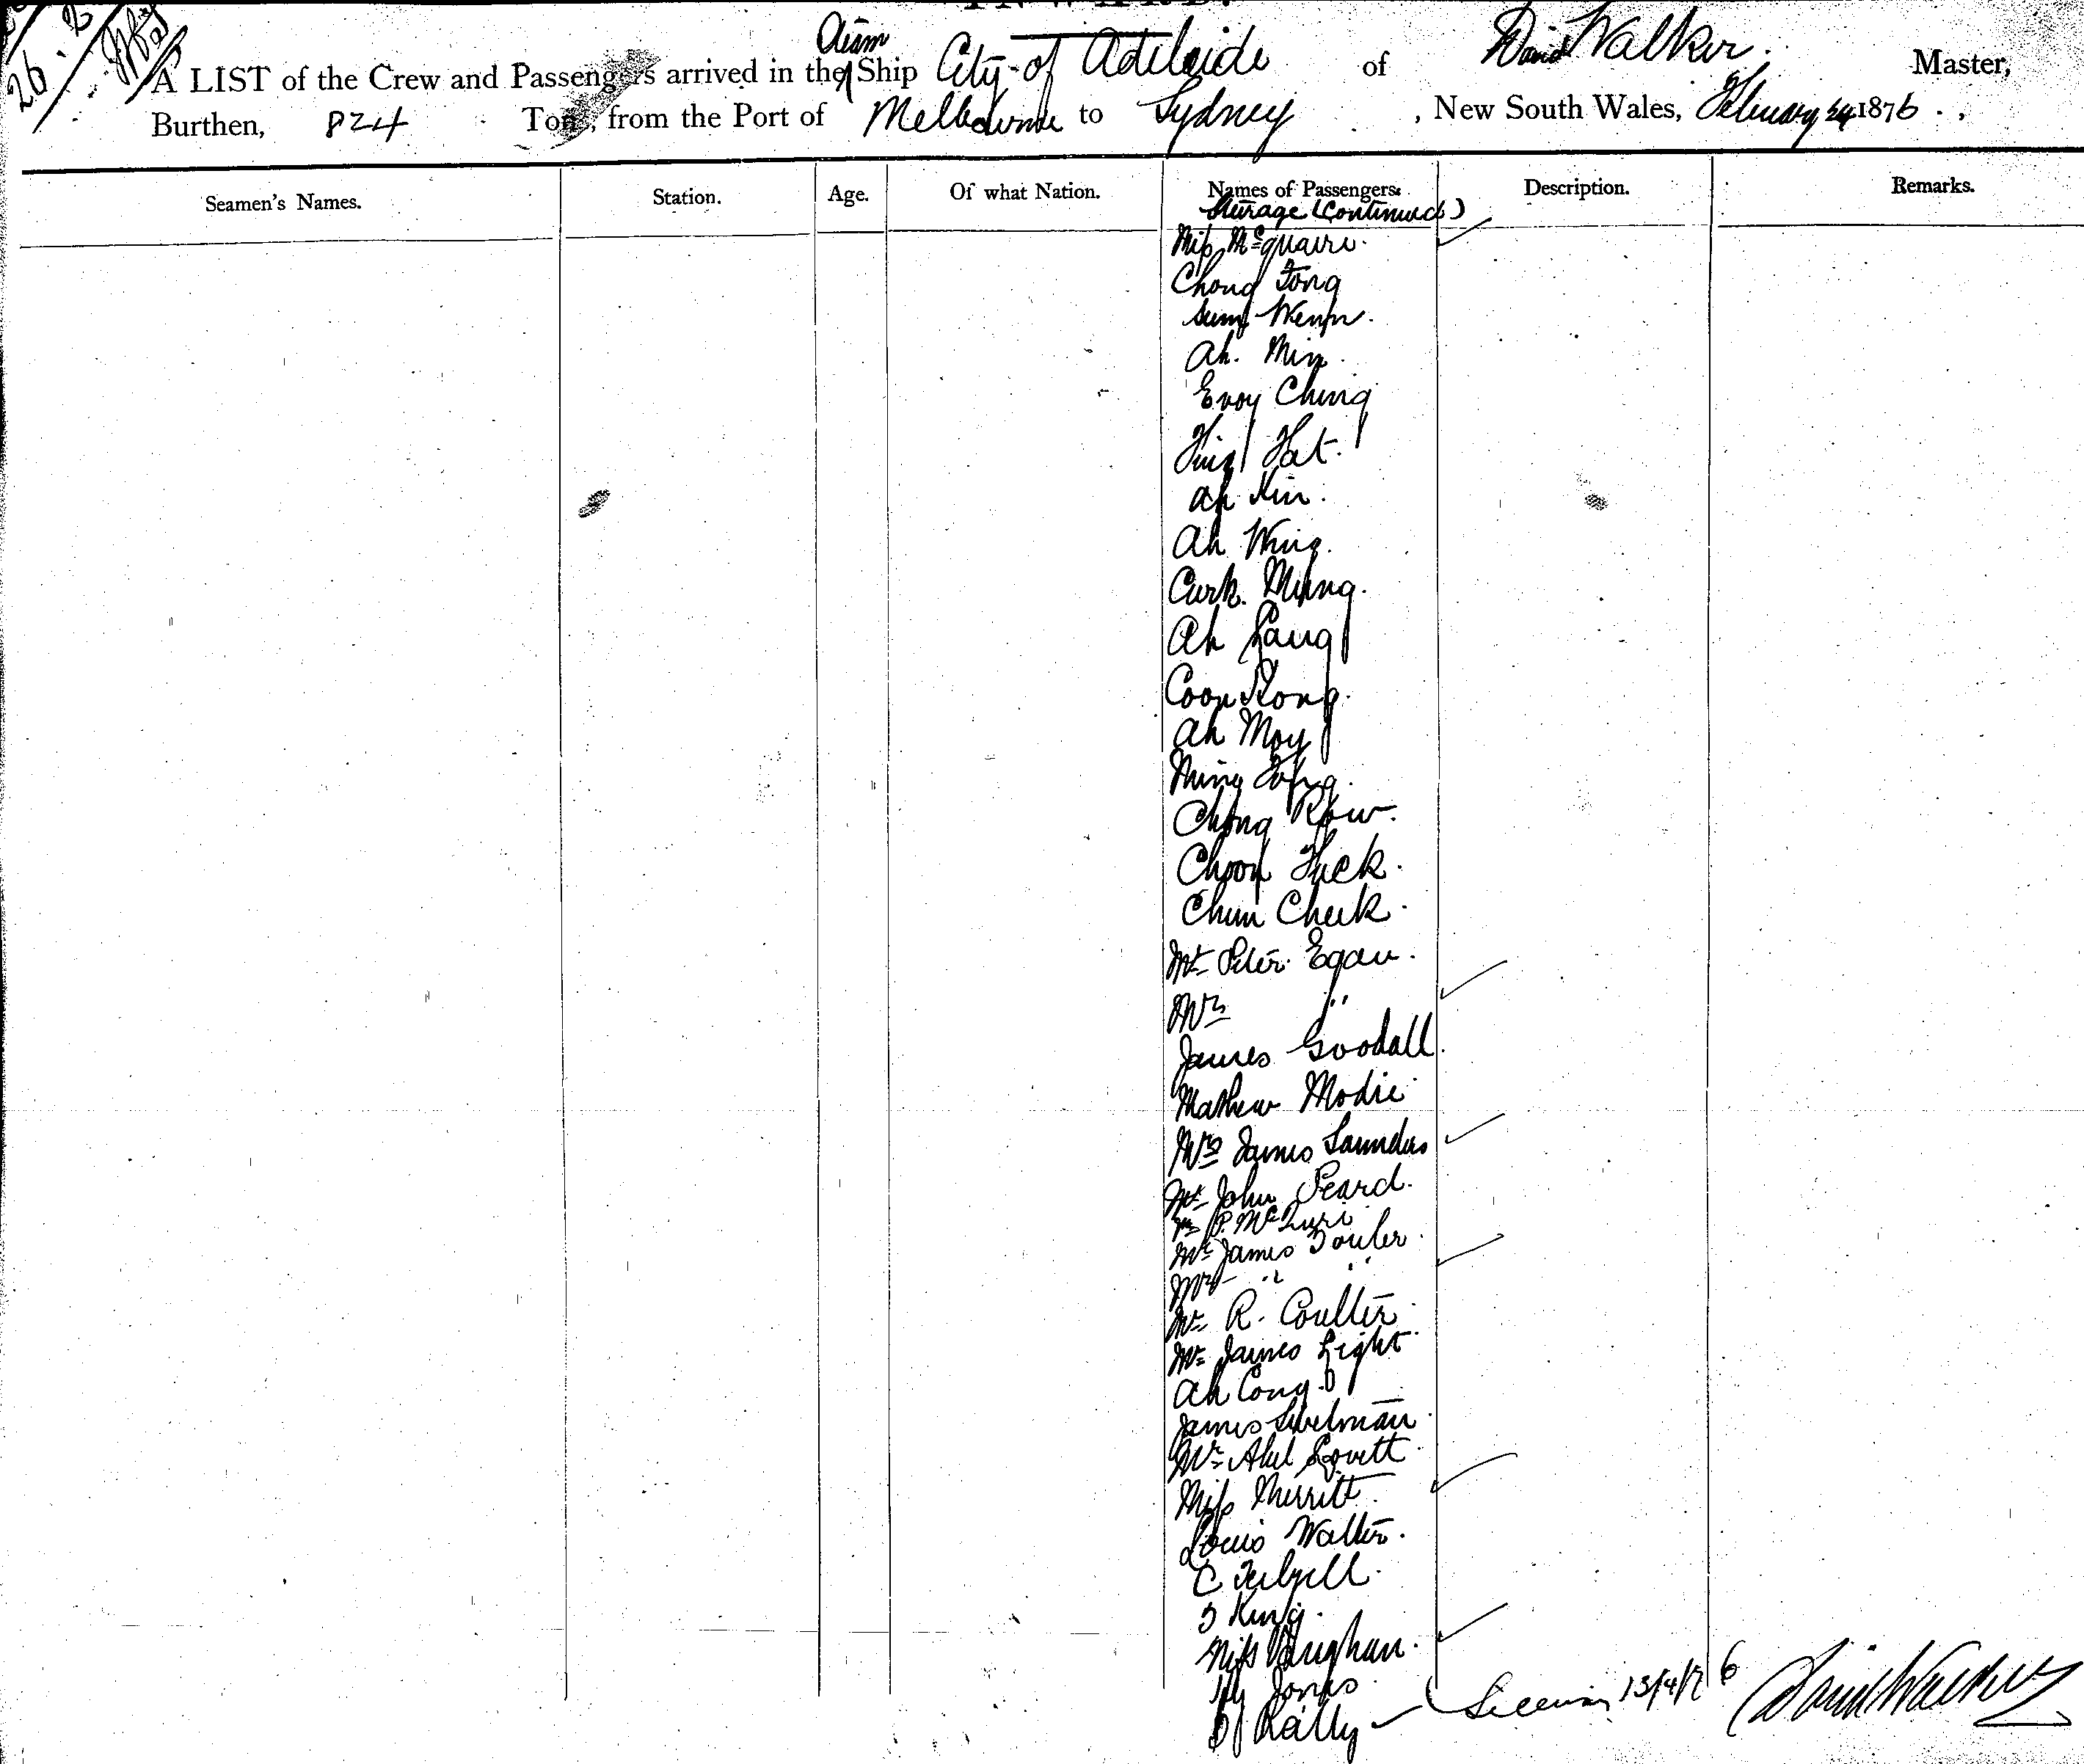 INWARD.
26.2
A LIST of the Crew and Passengers arrived in the Steam Ship City of Adelaide of David Walker Master,
Burthen, 824 Tons, from the Port of Melbourne to Sydney, New South Wales, February 24 1876.
Seamen's Names. Station. Age. Of what Nation. Names of Passengers. Description. Remarks.
Steerage (Continued)
Miss McQuaire.
Chong Fong
Ah. Min.
Evoy Ching
Hing Hat.
Ah Kin.
Ah Wing.
Curk. Mung.
Ah Lang
Coon Kong.
Ah Moy
Ming Fong.
Chong Row.
Choon Huck.
Chun Cheek.
Mr Peter Egan.
Mrs "
James Goodall.
Mathew Modie
Mrs James Saunders
Mr John Peard.
P. Mc
Mr James Fouler.
Mrs " "
Mr R. Coulter
Mr James Light
Ah Cong.
James
Mr Abel Lovett.
Miss Merritt.
Louis Walter.
C.
King.
Miss Vaughan.
Hy Jones
Rally
13/4/76 David Walker